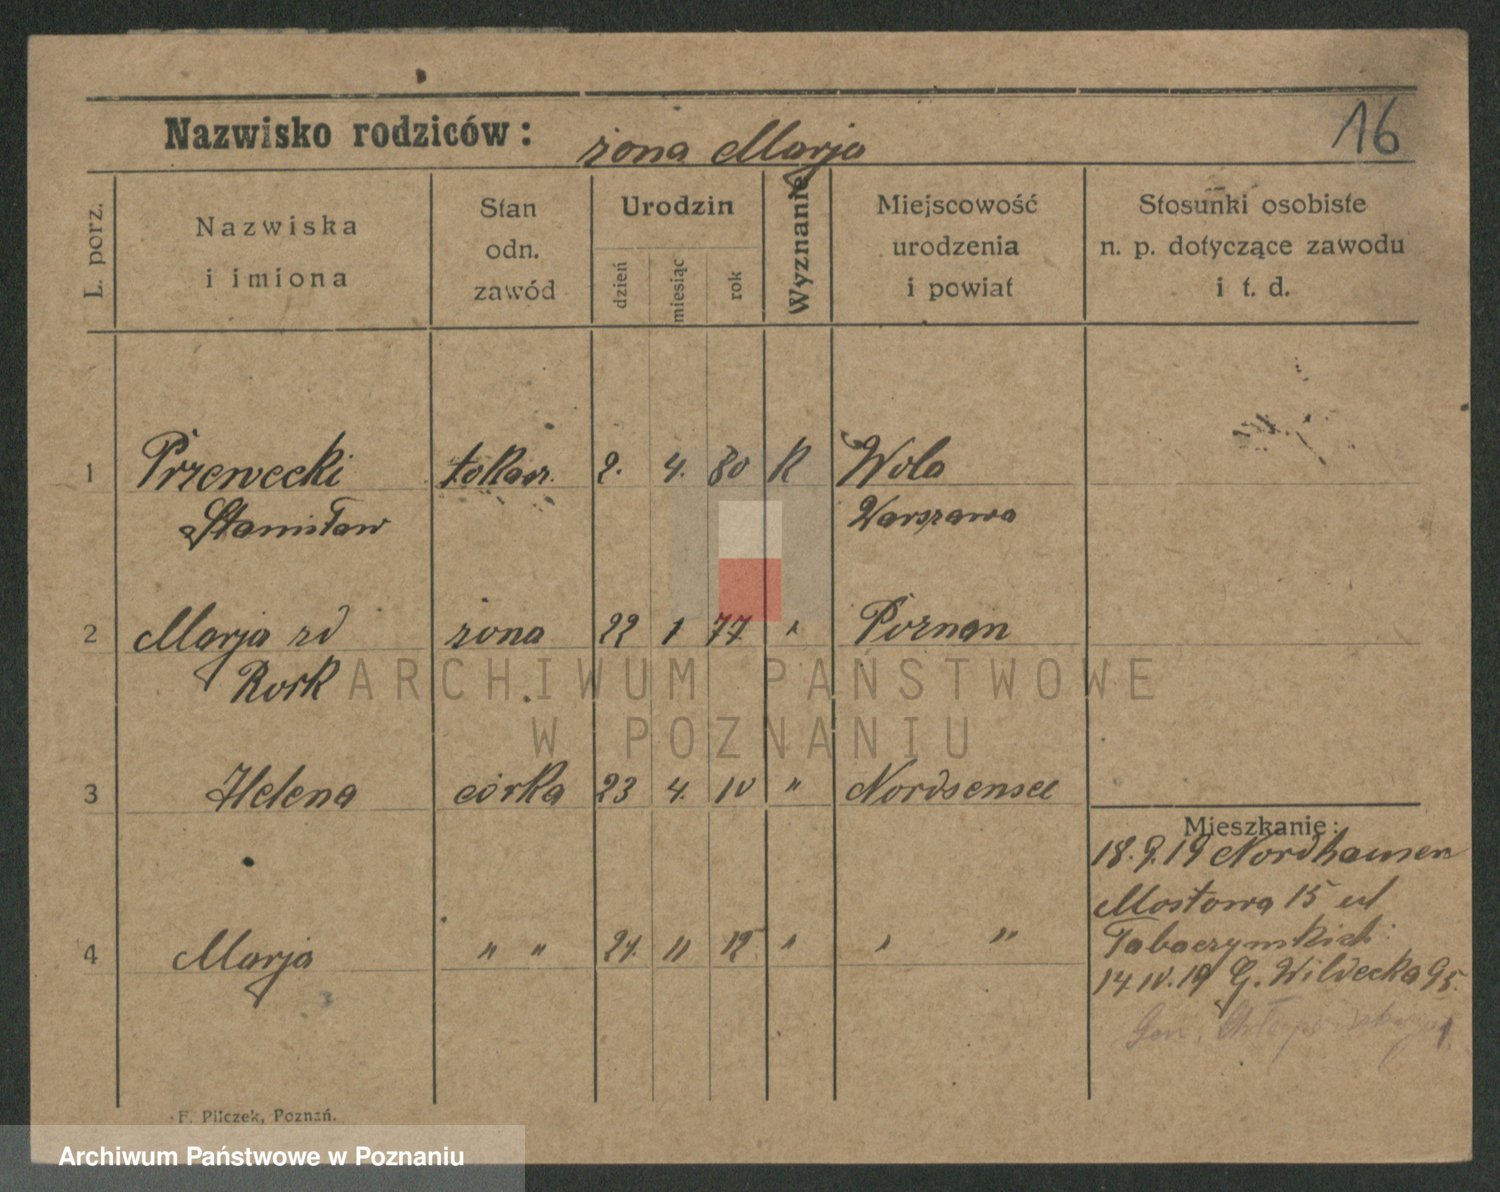 16
Nazwisko rodziców: żona Marja
L. porz.
Nazwiska
i imiona
Stan
odn.
zawód
Urodzin
dzień
miesiąc
rok
Wyznanie
Miejscowość
urodzenia
i powiat
Stosunki osobiste
n. p. dotyczące zawodu
i t. d.
1 Przewecki tokarz. 2. 4. 80 K Wola
Stanisław Warszawa
2 Marja zd żona 22 1 77 " Poznan
Rork
3 Helena córka 23 4. 10 " Nordsensee
Mieszkanie:
18.9.19 Nordhausen
Mostowa 15 ul
4 Marja " " 24. 11 12 " " "
14.IV.19 G. Wildecka 95.
Gen.
F. Pilczek, Poznań.
ARCHIWUM PAŃSTWOWE
W POZNANIU
Archiwum Państwowe w Poznaniu